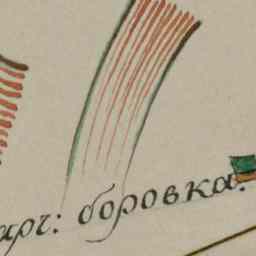 арг: боровка.